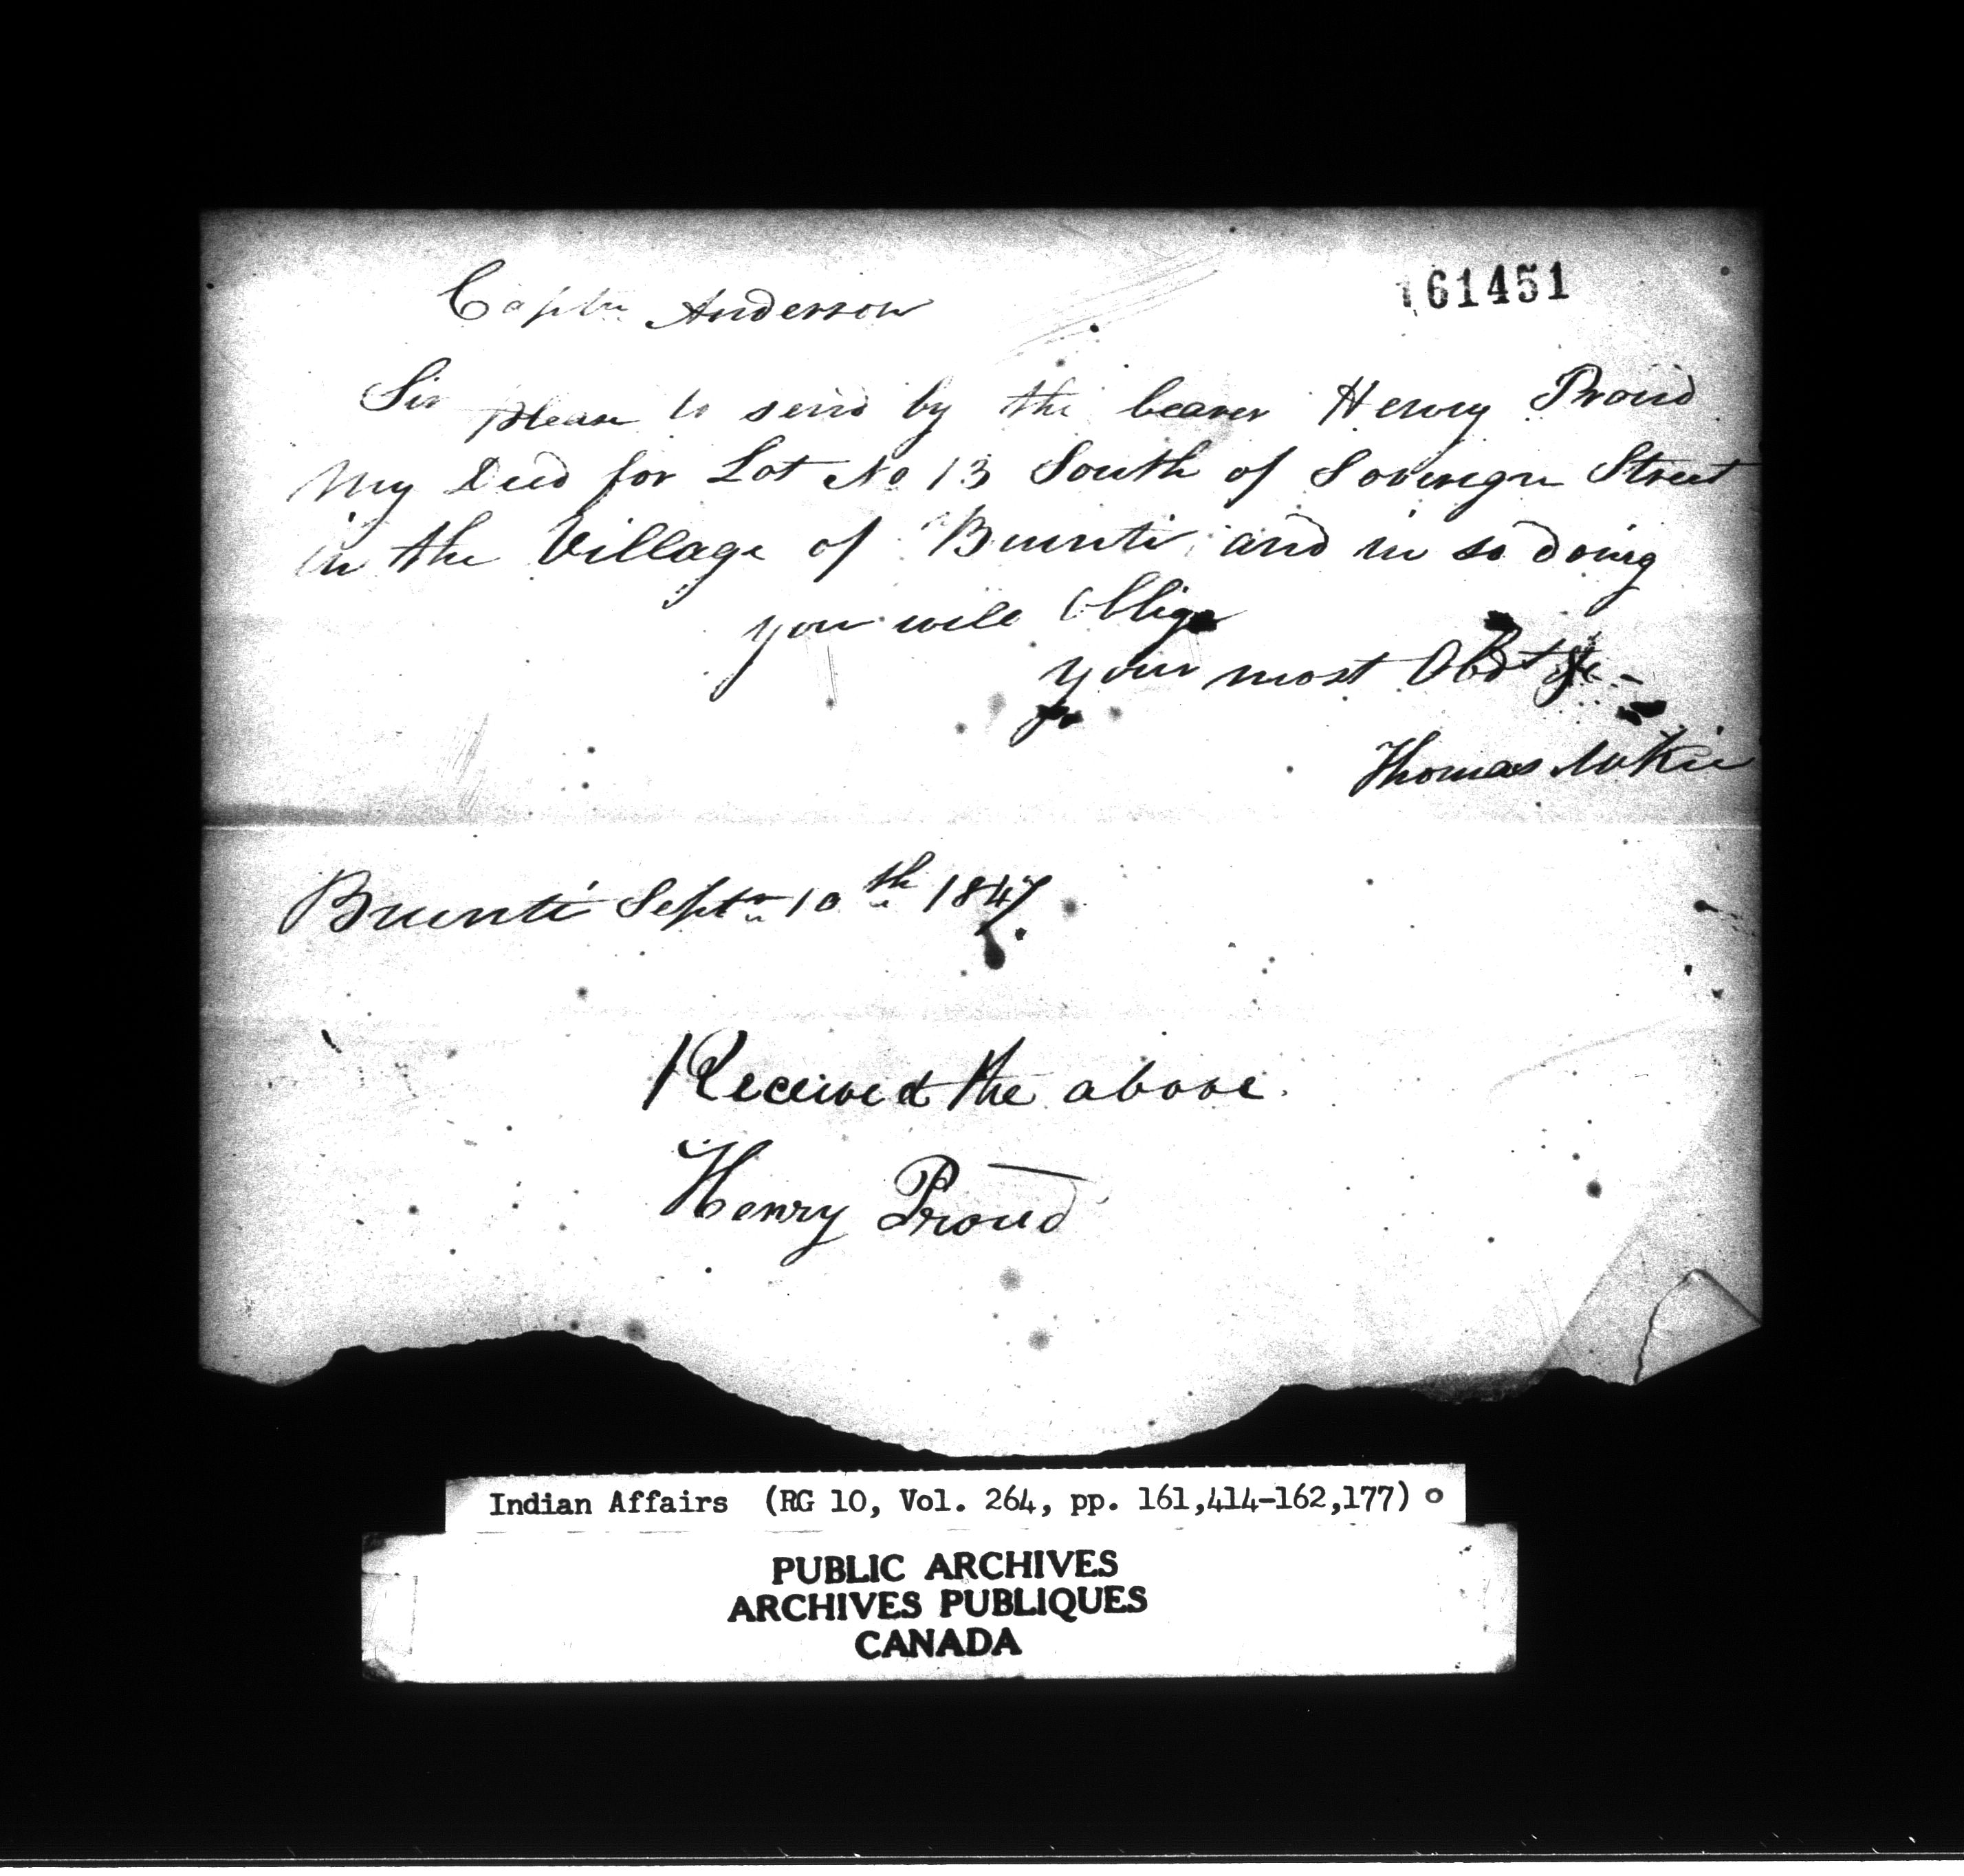 Captn Anderson
161451
Sir please to send by the bearer Henry Proud
My Deed for Lot No 13 South of Soveregn Street
in the Village of Buenti and in so doing
you will Oblige
your most Obdt
Thomas McKie
Buenti Septr 10th 1847.
Received the above.
Henry Proud
Indian Affairs (RG 10, Vol. 264, pp. 161,414-162,177)
PUBLIC ARCHIVES
ARCHIVES PUBLIQUES
CANADA